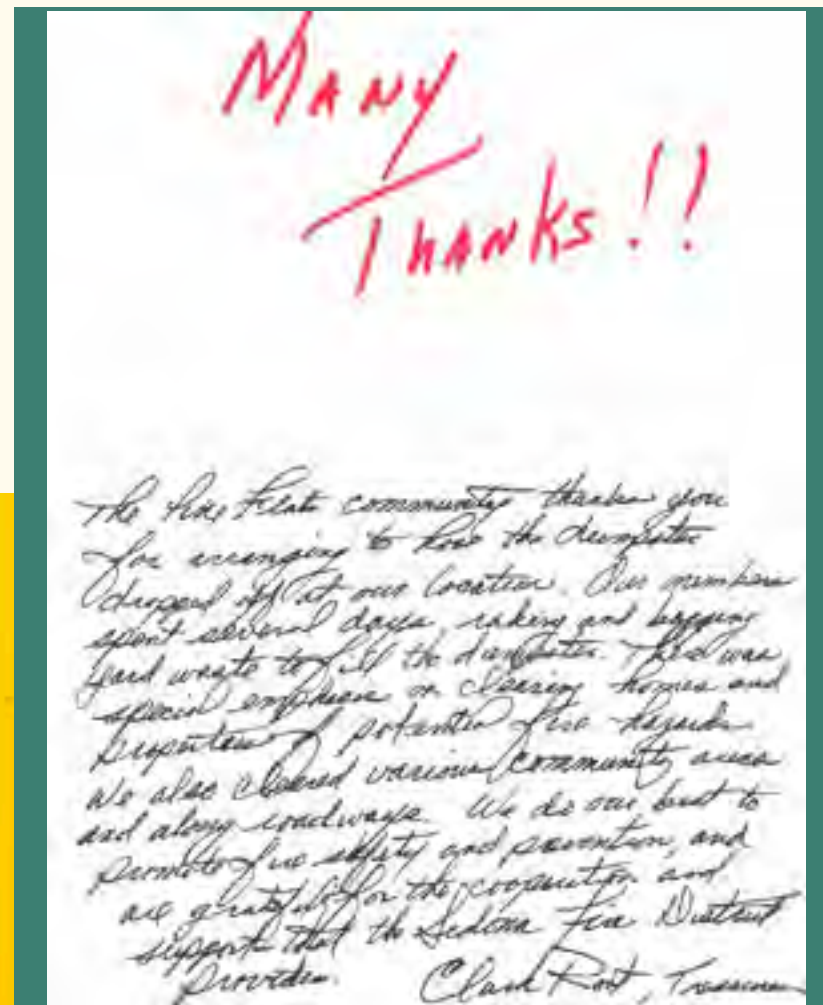 MANY
THANKS!!
The Pine Flats community thanks you
for arranging to have the dumpster
dropped off at our location. Our members
spent several days raking and bagging
yard waste to fill the dumpster. There was
special emphasis on clearing homes and
properties of potential fire hazards
We also cleared various community areas
and along roadways. We do our best to
promote fire safety and prevention, and
are grateful for the cooperation and
support that the Sedona Fire District
provides.
Clark Rost, Treasurer